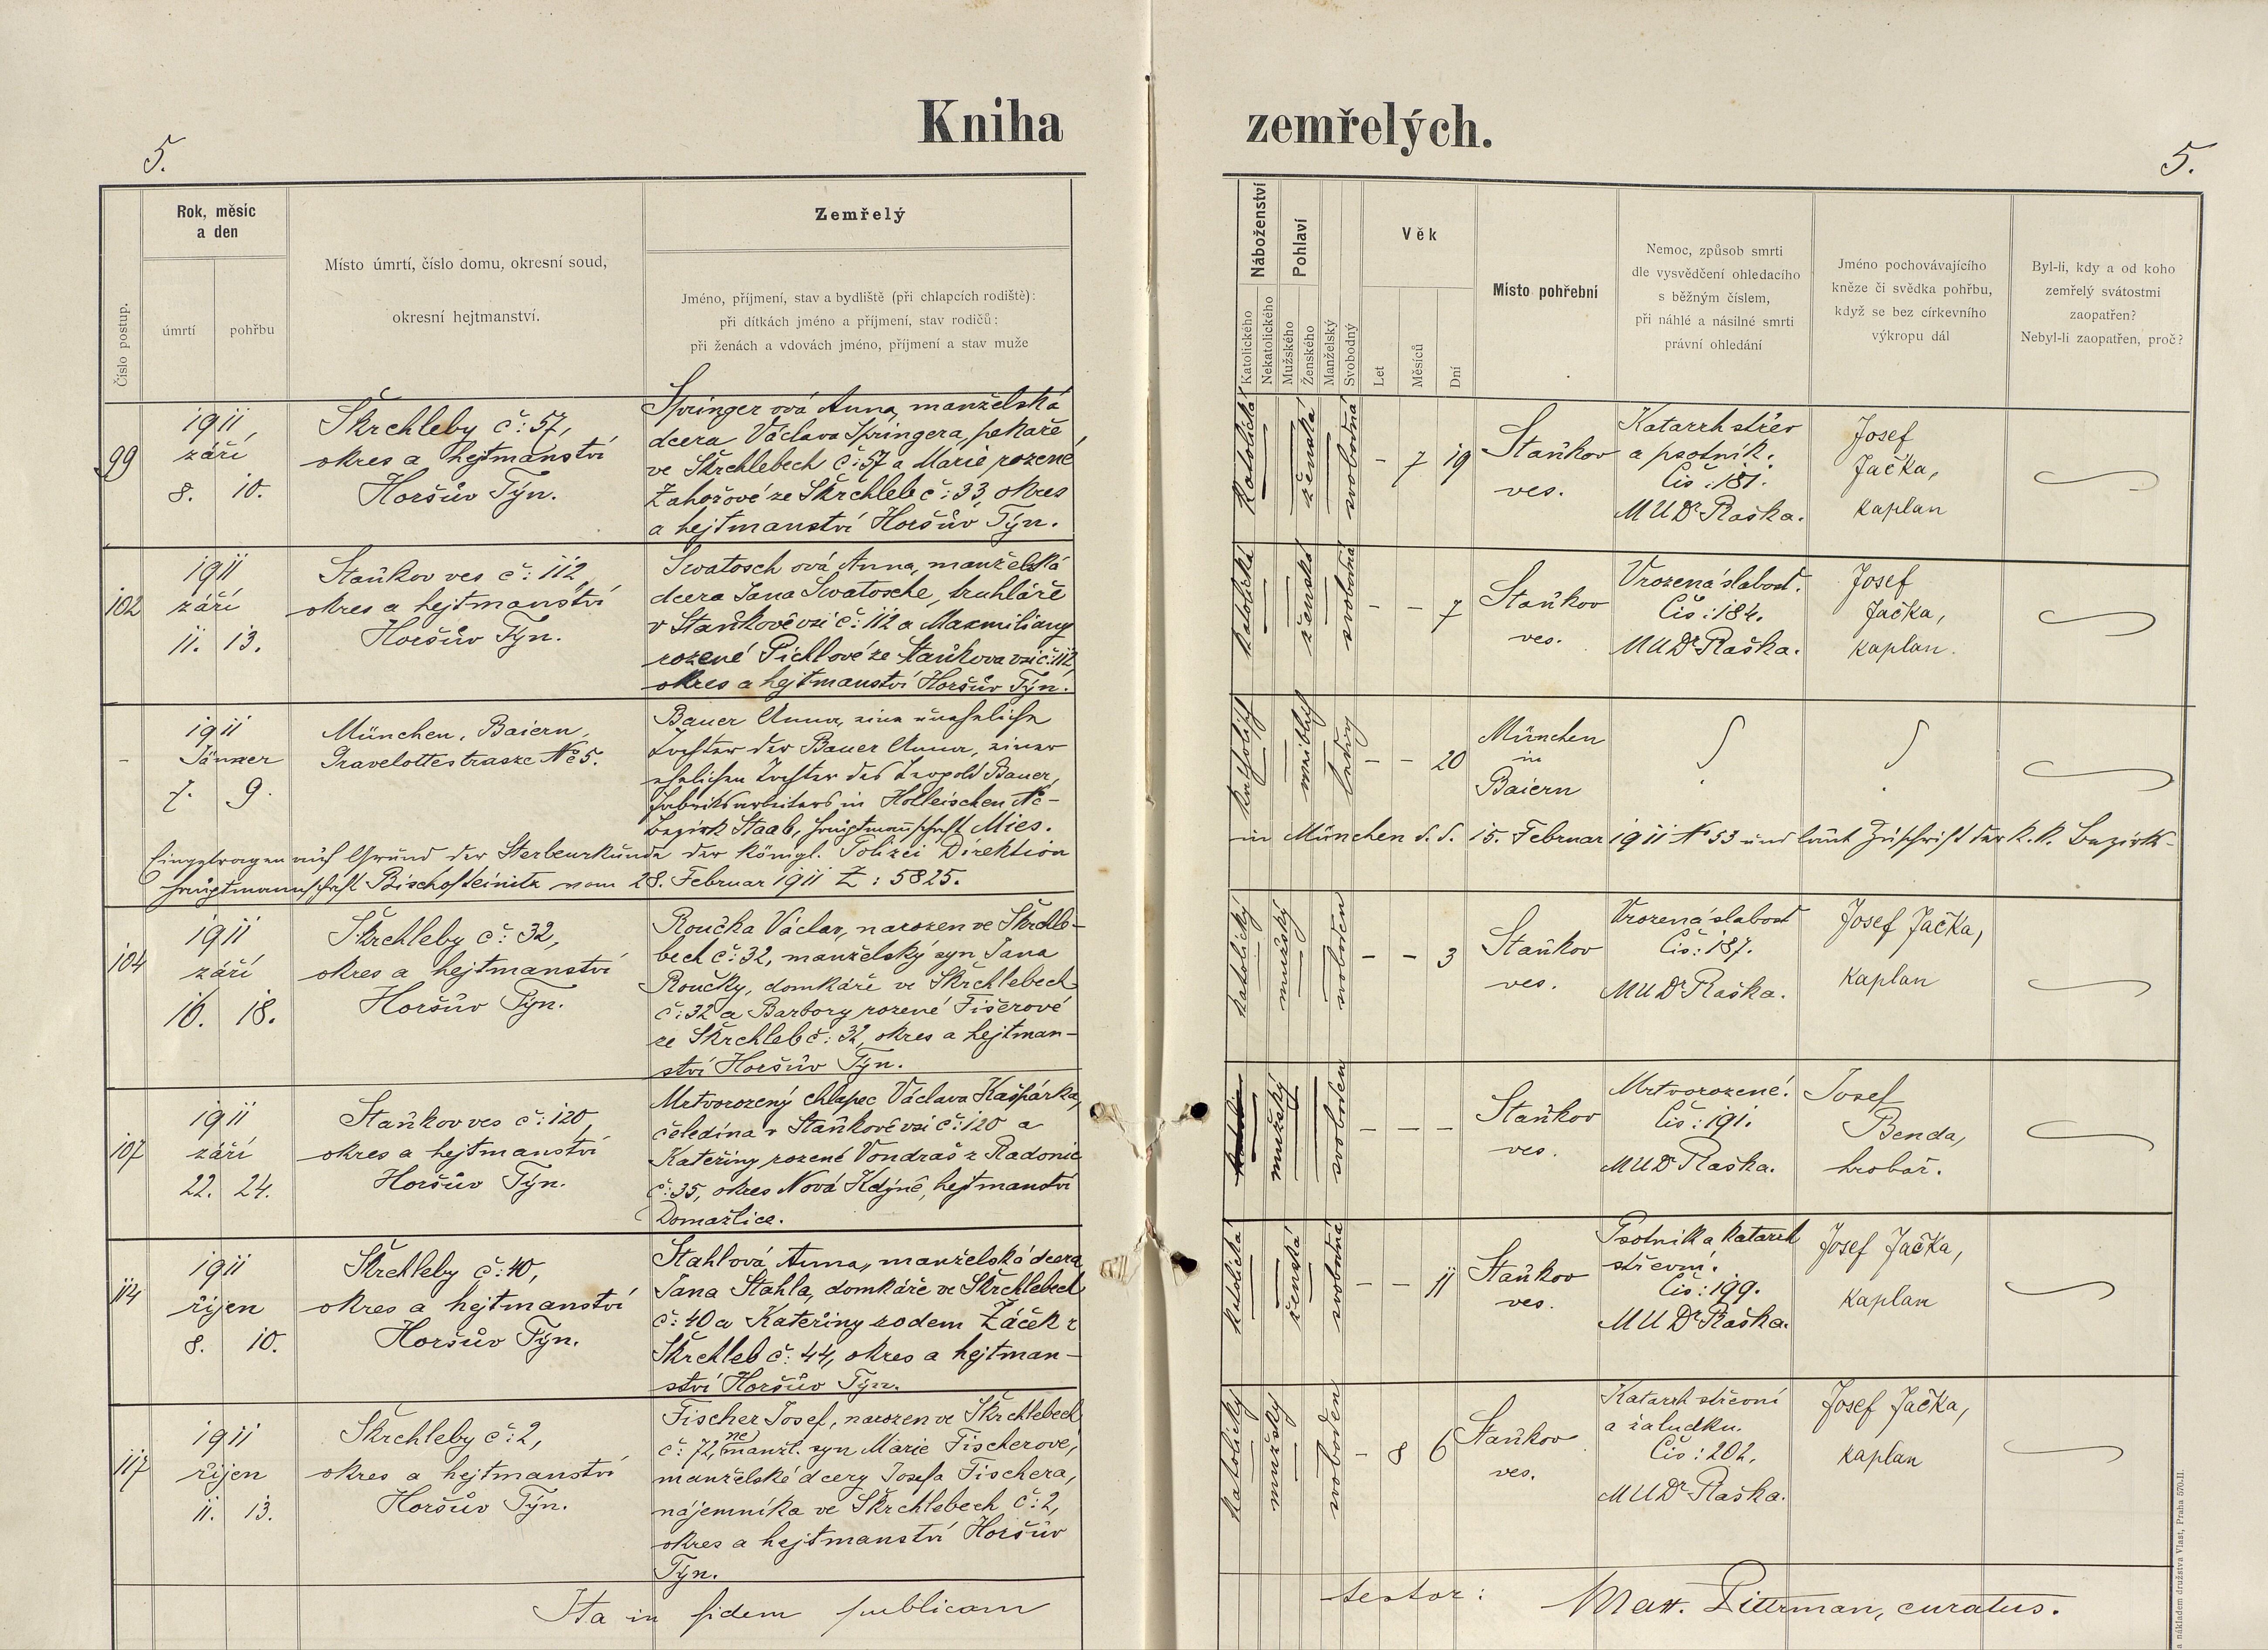 Kniha zemřelých.
5.
5.
Číslo postup.
Rok, měsíc
a den
úmrtí
pohřbu
Místo úmrtí, číslo domu, okresní soud,
okresní hejtmanství.
Zemřelý
Jméno, příjmení, stav a bydliště (při chlapcích rodiště):
při dítkách jméno a příjmení, stav rodičů:
při ženách a vdovách jméno, příjmení a stav muže
Náboženství
Katolického
Nekatolického
Pohlaví
Mužského
Ženského
Manželský
Svobodný
Věk
Let
Měsíců
Dní
Místo pohřební
Nemoc, způsob smrti
dle vysvědčení ohledacího
s běžným číslem,
při náhlé a násilné smrti
právní ohledání
Jméno pochovávajícího
kněze či svědka pohřbu,
když se bez církevního
výkropu dál
Byl-li, kdy a od koho
zemřelý svátostmi
zaopatřen?
Nebyl-li zaopatřen, proč?
99
1911,
září
8. 10.
Škrchleby č: 57,
okres a hejtmanství
Horšův Týn.
Springerová Anna, manželská
dcera Václava Springera, pekaře
ve Škrchlebech č: 57 a Marie rozené
Zahořové ze Škrchleb č: 33, okres
a hejtmanství Horšův Týn.
katolická
ženská
svobodná
- 7 19
Staňkov
ves.
Katarrh střev
a psotník.
Čís: 181.
MUDr Raška.
Josef
Jačka,
kaplan
102
1911
září
11. 13.
Staňkov ves č: 112,
okres a hejtmanství
Horšův Týn.
Swatoschová Anna, manželská
dcera Jana Swatosche, truhláře
v Staňkově vsi č: 112 a Maxmiliany
rozené Pichlové ze Staňkova vsi č: 112,
okres a hejtmanství Horšův Týn.
katolická
ženská
svobodná
- - 7
Staňkov
ves.
Vrozená slabost.
Čís: 184.
MUDr Raška.
Josef
Jačka,
kaplan.
-
1911
Jänner
7. 9.
München, Baiern,
Gravelottestrasze No 5.
Bauer Anna, eine uneheliche
Tochter der Bauer Anna, einer
ehelichen Tochter des Leopold Bauer,
Fabriksarbeiters in Holleischen No -
Bezirk Staab, Hauptmannschaft Mies.
katholisch
weiblich
ledig
- - 20
München
in
Baiern
Eingetragen auf Grund der Sterbeurkunde der königl. Polizei Direktion in München d. d. 15. Februar 1911 No 53 und laut Zuschrift der k. k. Bezirks-
hauptmannschaft Bischofteinitz vom 28. Februar 1911 Z: 5825.
104
1911
září
16. 18.
Škrchleby č: 32,
okres a hejtmanství
Horšův Týn.
Roučka Václav, narozen ve Škrchle-
bech č: 32, manželský syn Jana
Roučky, domkáře ve Škrchlebech
č: 32 a Barbory rozené Fišerové
ze Škrchleb č: 32, okres a hejtman-
ství Horšův Týn.
katolický
mužský
svoboden
- - 3
Staňkov
ves.
Vrozená slabost
Čís: 187.
MUDr Raška.
Josef Jačka,
kaplan
107
1911
září
22. 24.
Staňkov ves č: 120,
okres a hejtmanství
Horšův Týn.
Mrtvorozený chlapec Václava Kašpárka,
čeledína v Staňkově vsi č: 120 a
Kateřiny rozené Vondraš z Radonic
č: 35, okres Nová Kdýně, hejtmanství
Domažlice.
mužský
svoboden
- - -
Staňkov
ves.
Mrtvorozené.
Čís: 191.
MUDr Raška.
Josef
Benda,
hrobař.
114
1911
říjen
8. 10.
Škrchleby č: 40,
okres a hejtmanství
Horšův Týn.
Stahlová Anna, manželská dcera
Jana Stahla, domkáře ve Škrchlebech
č: 40 a Kateřiny rodem Žáček z
Škrchleb č: 44, okres a hejtman-
ství Horšův Týn.
katolická
ženská
svobodná
- - 11
Staňkov
ves.
Psotník a katarrh
střevní.
Čís: 199.
MUDr Raška.
Josef Jačka,
kaplan
117
1911
říjen
11. 13.
Škrchleby č: 2,
okres a hejtmanství
Horšův Týn.
Fischer Josef, narozen ve Škrchlebech
č: 72, nemanžl. syn Marie Fischerové,
manželské dcery Josefa Fischera,
nájemníka ve Škrchlebech č: 2,
okres a hejtmanství Horšův
Týn.
katolický
mužský
svoboden
- 8 6
Staňkov
ves.
Katarrh střevní
a žaludku.
Čís: 202.
MUDr Raška.
Josef Jačka,
kaplan
Ita in fidem publicam testor: Mat. Pittrman, curatus.
a nákladem družstva Vlast, Praha 570-II.